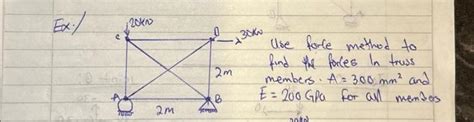 Ex:/
20KN
C
D
30KN
2m
A
B
2m
Use force method to
find the forces In truss
members. A = 300 mm² and
E = 200 GPa for all members